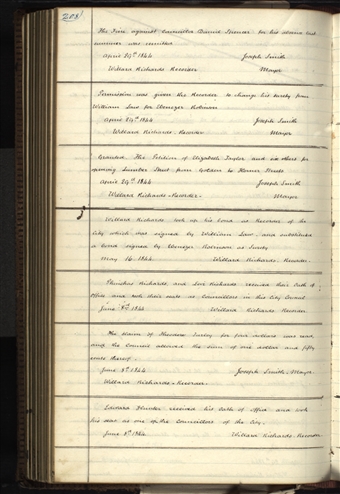 208
The Fine against Councillor Daniel Spencer for his absence last
summer was remitted
April 29th 1844 Joseph Smith
Willard Richards Recorder Mayor
Permission was given the Recorder to change his surety from
William Law for Ebenezer Robinson
April 29th 1844 Joseph Smith
Willard Richards - Recorder Mayor
Granted, The Petition of Elizabeth Taylor and six others for
opening Street from to Streets
April 29th 1844 Joseph Smith
Willard Richards - Recorder - Mayor
Willard Richards took up his bond as Recorder of the
City which was signed by William Law - and substituted
a bond signed by Ebenezer Robinson as Surety
May 16 1844 Willard Richards - Recorder -
Phinehas Richards, and Levi Richards received their Oath of
office and took their seats as Councillors in this City Council
June 1844 Willard Richards Recorder
The claim of Theodore Turley for four dollars was read
and the Council allowed the sum of one dollar and fifty
cents thereof -
June 8th 1844 Joseph Smith, Mayor
Willard Richards - Recorder -
Edward Hunter received his Oath of office and took
his seat as one of the Councillors of the City.
June 8th 1844 Willard Richards - Recorder